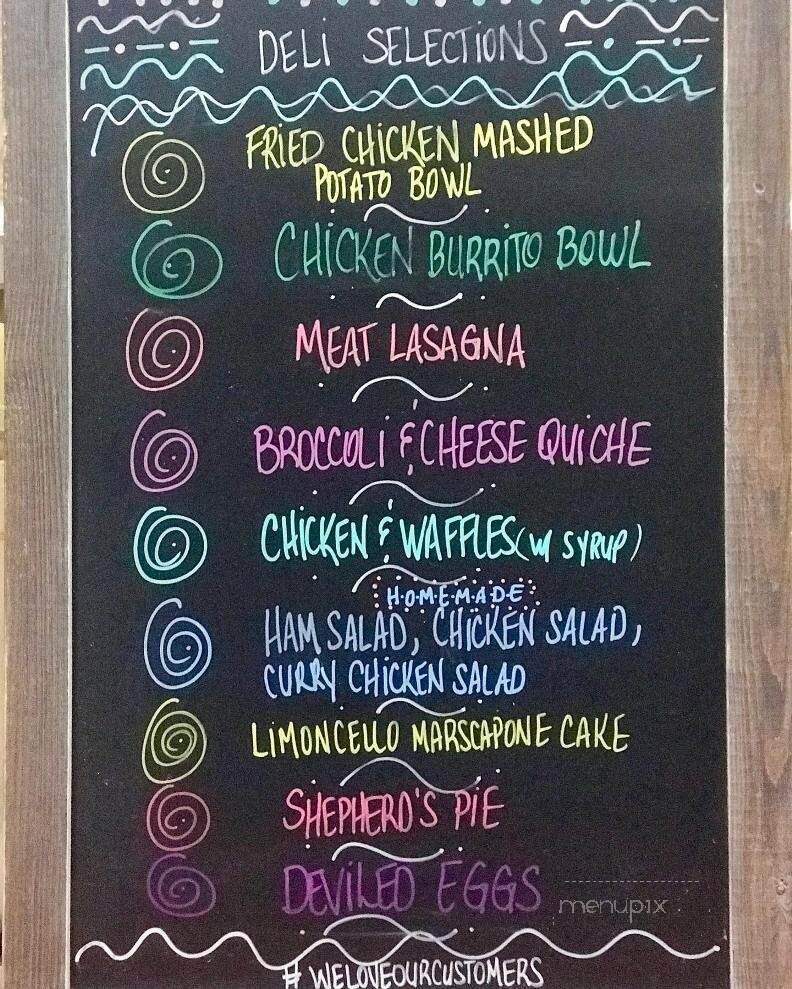 DELI SELECTIONS
FRIED CHICKEN MASHED
POTATO BOWL
CHICKEN BURRITO BOWL
MEAT LASAGNA
BROCCOLI & CHEESE QUICHE
CHICKEN & WAFFLES (W/ SYRUP)
H·O·M·E·M·A·D·E
HAM SALAD, CHICKEN SALAD,
CURRY CHICKEN SALAD
LIMONCELLO MARSCAPONE CAKE
SHEPHERD'S PIE
DEVILED EGGS
menupix
# WELOVEOURCUSTOMERS